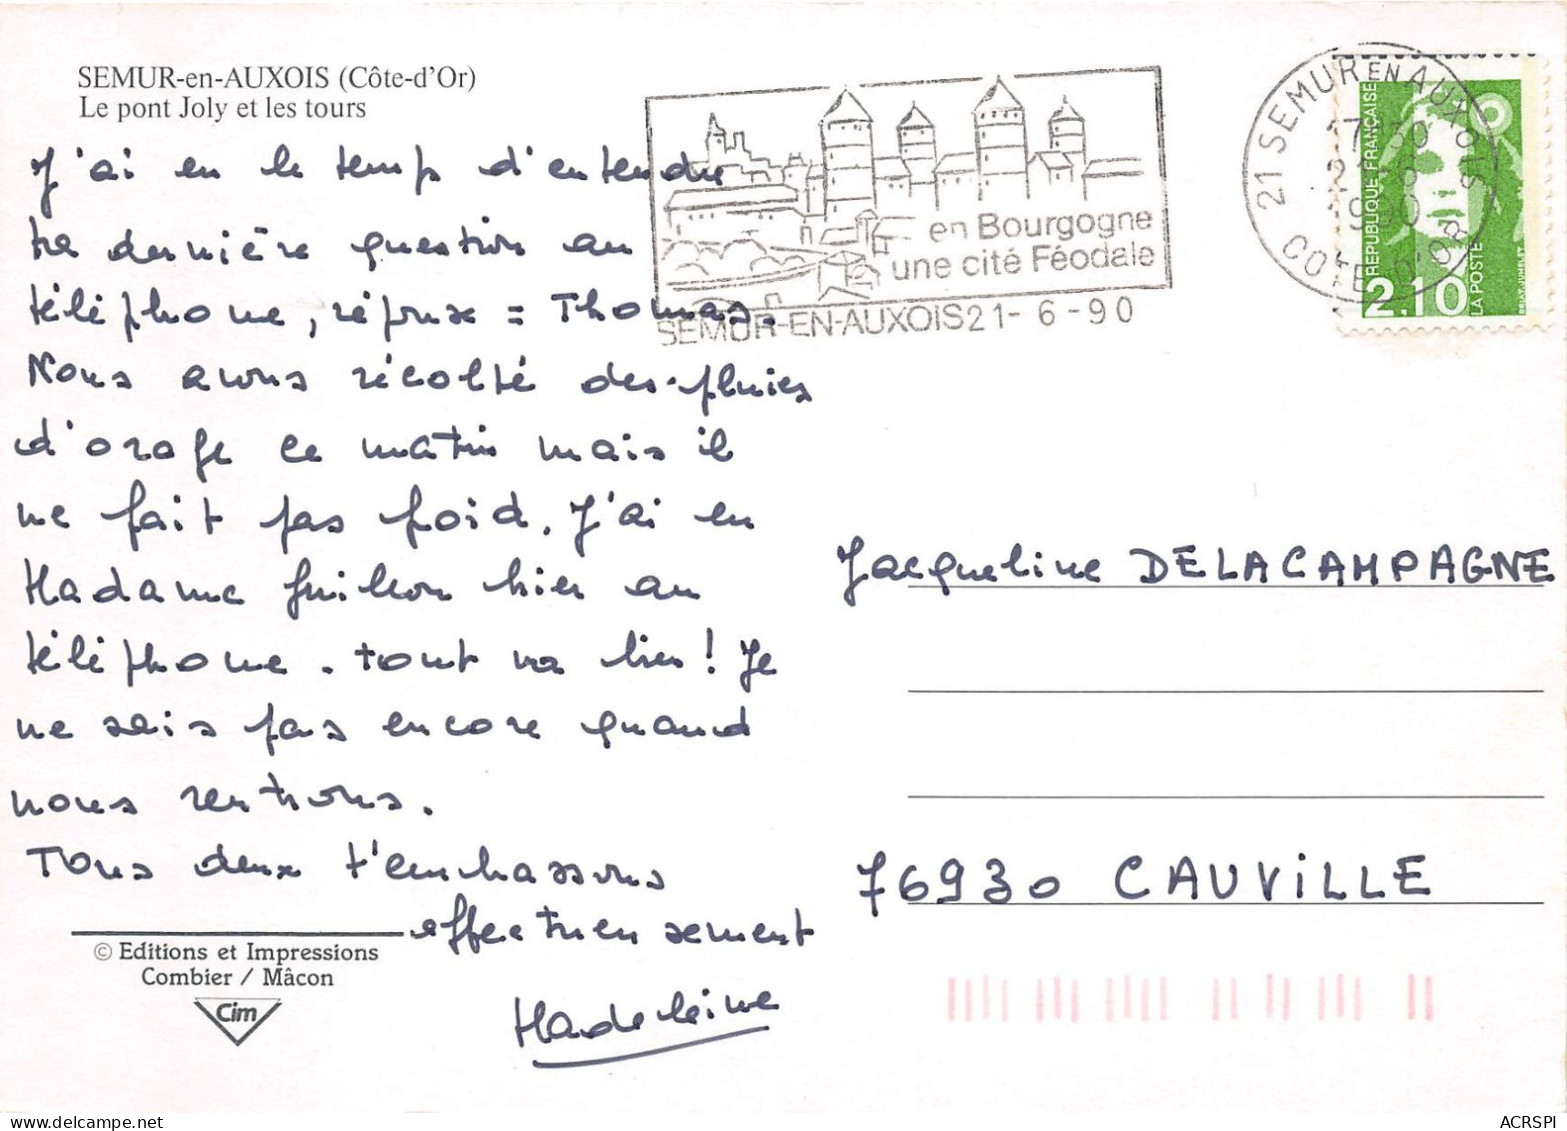 SEMUR-en-AUXOIS (Côte-d'Or)
Le pont Joly et les tours
J'ai eu le temps d'entendre
ta dernière question au
téléphone, réponse = Thomas.
Nous avons récolté des pluies
d'orage ce matin mais il
ne fait pas froid. J'ai eu
Madame Guillon hier au
téléphone. tout va bien! Je
ne sais pas encore quand
nous rentrons.
Tous deux t'embrassons
affectueusement
Madeleine
© Editions et Impressions
Combier / Mâcon
Cim
en Bourgogne
une cité Féodale
SEMUR-EN-AUXOIS 21-6-90
21 SEMUR EN AUXOIS
17 H 30
21-6
1990
COTE D'OR
REPUBLIQUE FRANÇAISE
2.10
LA POSTE
Jacqueline DELACAMPAGNE
76930 CAUViLLE
ACRSPI